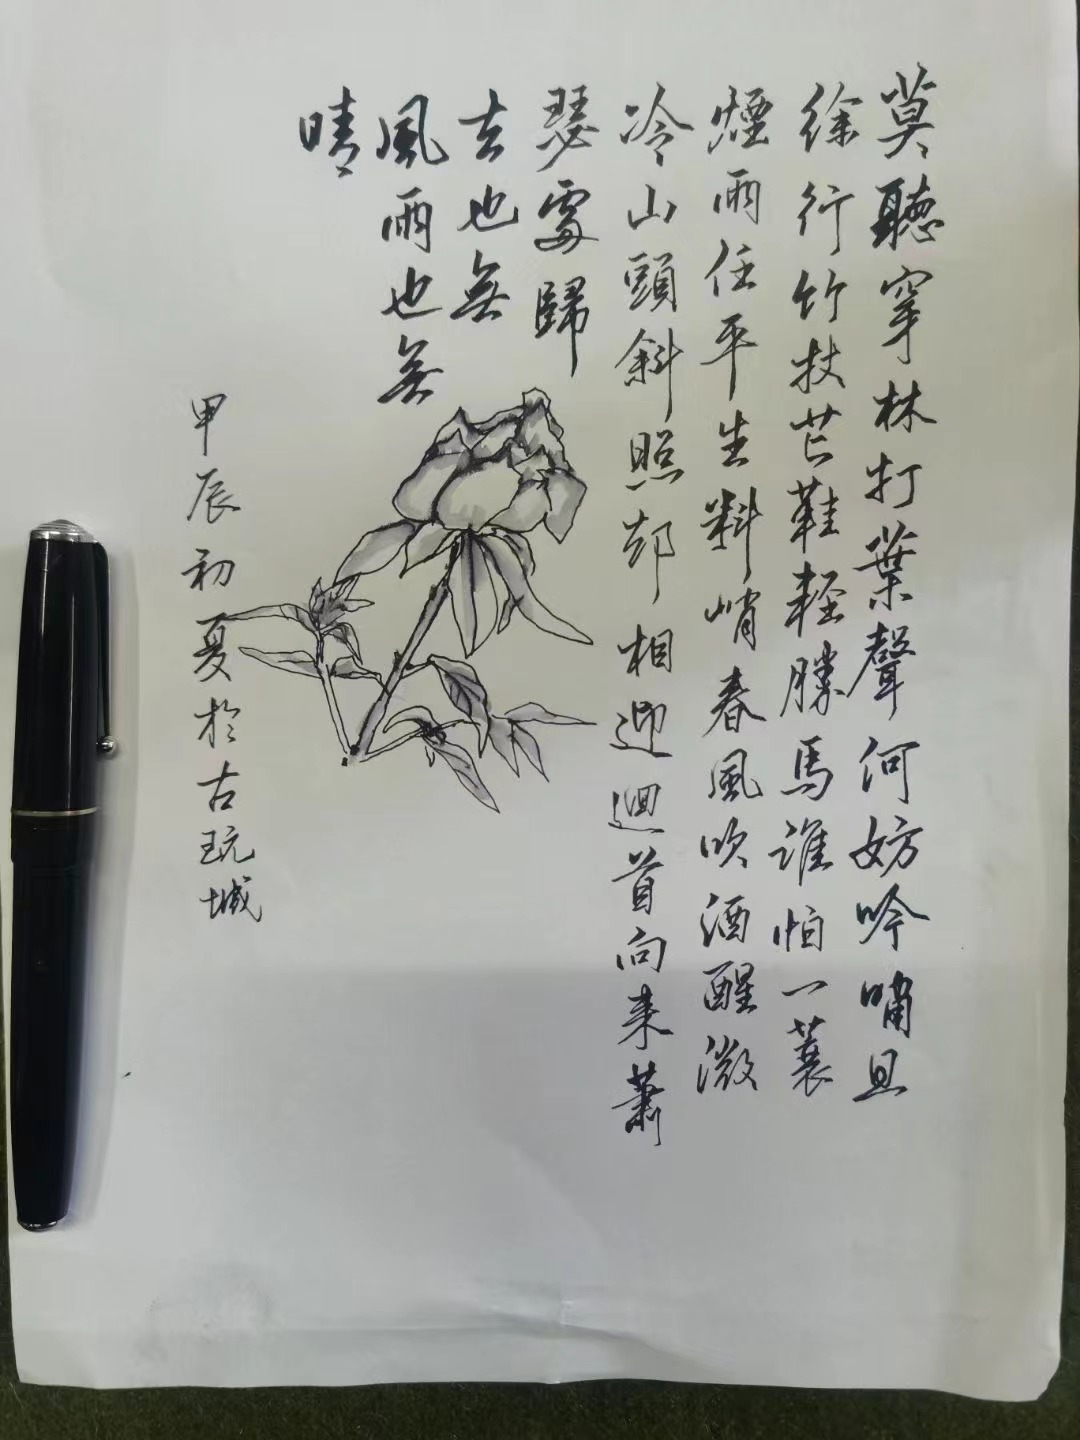 莫聽穿林打葉聲何妨吟嘯且
徐行竹杖芒鞋輕勝馬誰怕一蓑
煙雨任平生料峭春風吹酒醒微
冷山頭斜照却相迎迴首向来蕭
瑟處歸
去也無
風雨也無
晴
甲辰初夏於古玩城